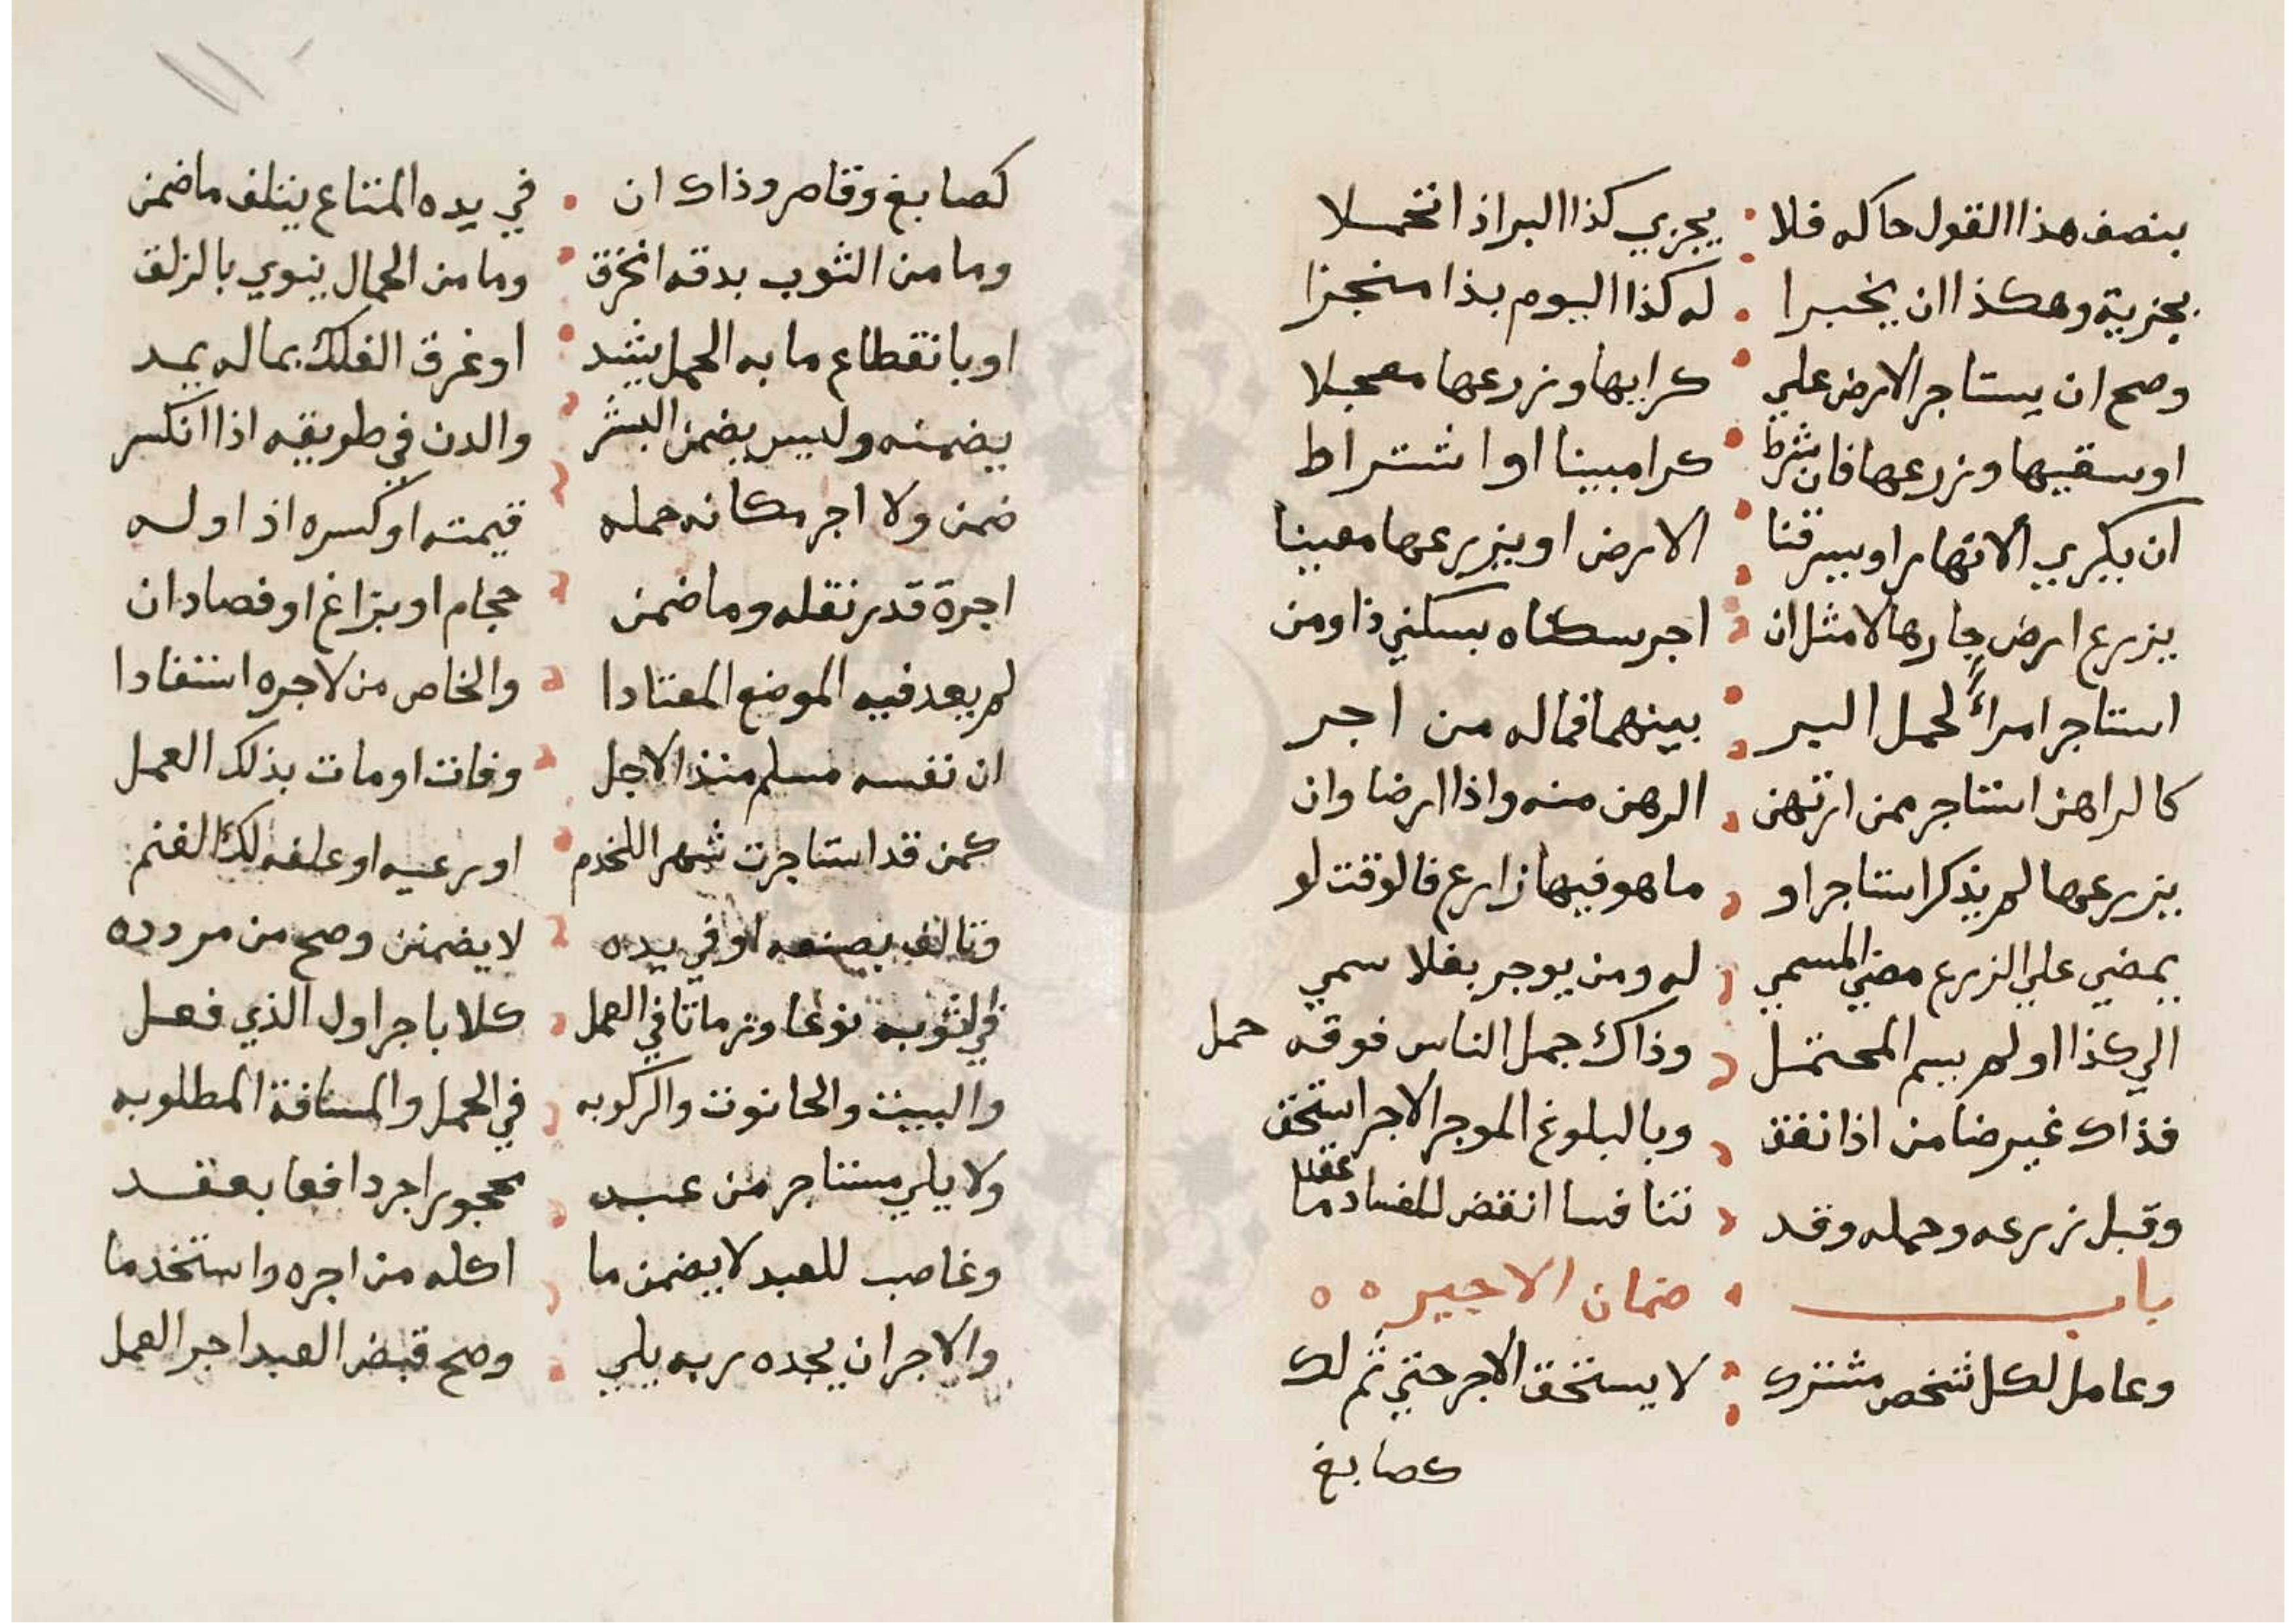 بنصف هذا القول حاكه فلا يجزي كذا البر اذا تحملا
بجزية وهكذا ان يخبرا له كذا اليوم بذا منجزا
وصح ان يستاجر الارض علي كرابها وزرعها معجلا
او سقيها وزرعها فان شرط كرا مبينا او اشتراط
ان يكري الانهار او يسرقنا الارض او يزرعها معينا
يزرع ارض جارها لا مثل ان اجر سكناه بسكني ذا ومن
استاجر امرأً لحمل البر بينهما فماله من اجر
كالراهن استاجر ممن ارتهن الرهن منه واذا ارضا وان
يزرعها لم يذكر استاجر او ما هو فيها زارع فالوقت لو
يمضي علي الزرع مضي المسمي له ومن يوجر بغلا سمي
الي كذا او لم يسم المحتمل وذاك جمل الناس فوقه حمل
فذاك غير ضامن اذا نفق وبالبلوغ الموجر الاجر استحق
وقبل زرعه وحمله وقد تنافسا انقض للفساد ما عقدا
باب ضمان الاجير
وعامل لكل شخص مشترك لا يستحق الاجر حتي ثم لك
كصابغ
كصابغ وقاصر وذاك ان في يده المتاع يتلف ما ضمن
وما من الثوب بدقه انخرق وما من الحمال ينوي بالزلق
او بانقطاع ما به الحمل يشد او غرق الفلك بماله يمد
يضمنه وليس يضمن البشر والدن في طريقه اذا انكسر
ضمن ولا اجر مكانه حمله قيمته او كسره اذ اوله
اجرة قدر نقله وما ضمن حجام او بزاغ او فصاد ان
لم يعد فيه الموضع المعتادا والخاص من لاجره استفادا
ان نفسه مسلم منذ الاجل وفات او مات بذلك العمل
كمن قد استاجرت شهرا للخدم او رعيه او علفه لك الغنم
وتالف بصنعه او في يده لا يضمنن وصح من مردده
في الثوب نوعا وزمانا في العمل كلا باجر اول الذي فعل
والبيت والحانوت والركوبه في الحمل والمسافة المطلوبه
ولا يلي مستاجر من عبد محجور اجر دافعا بعقد
وغاصب للعبد لا يضمن ما اكله من اجره واستخدما
والاجر ان يجده ربه يلي وصح قبض العبد اجر العمل